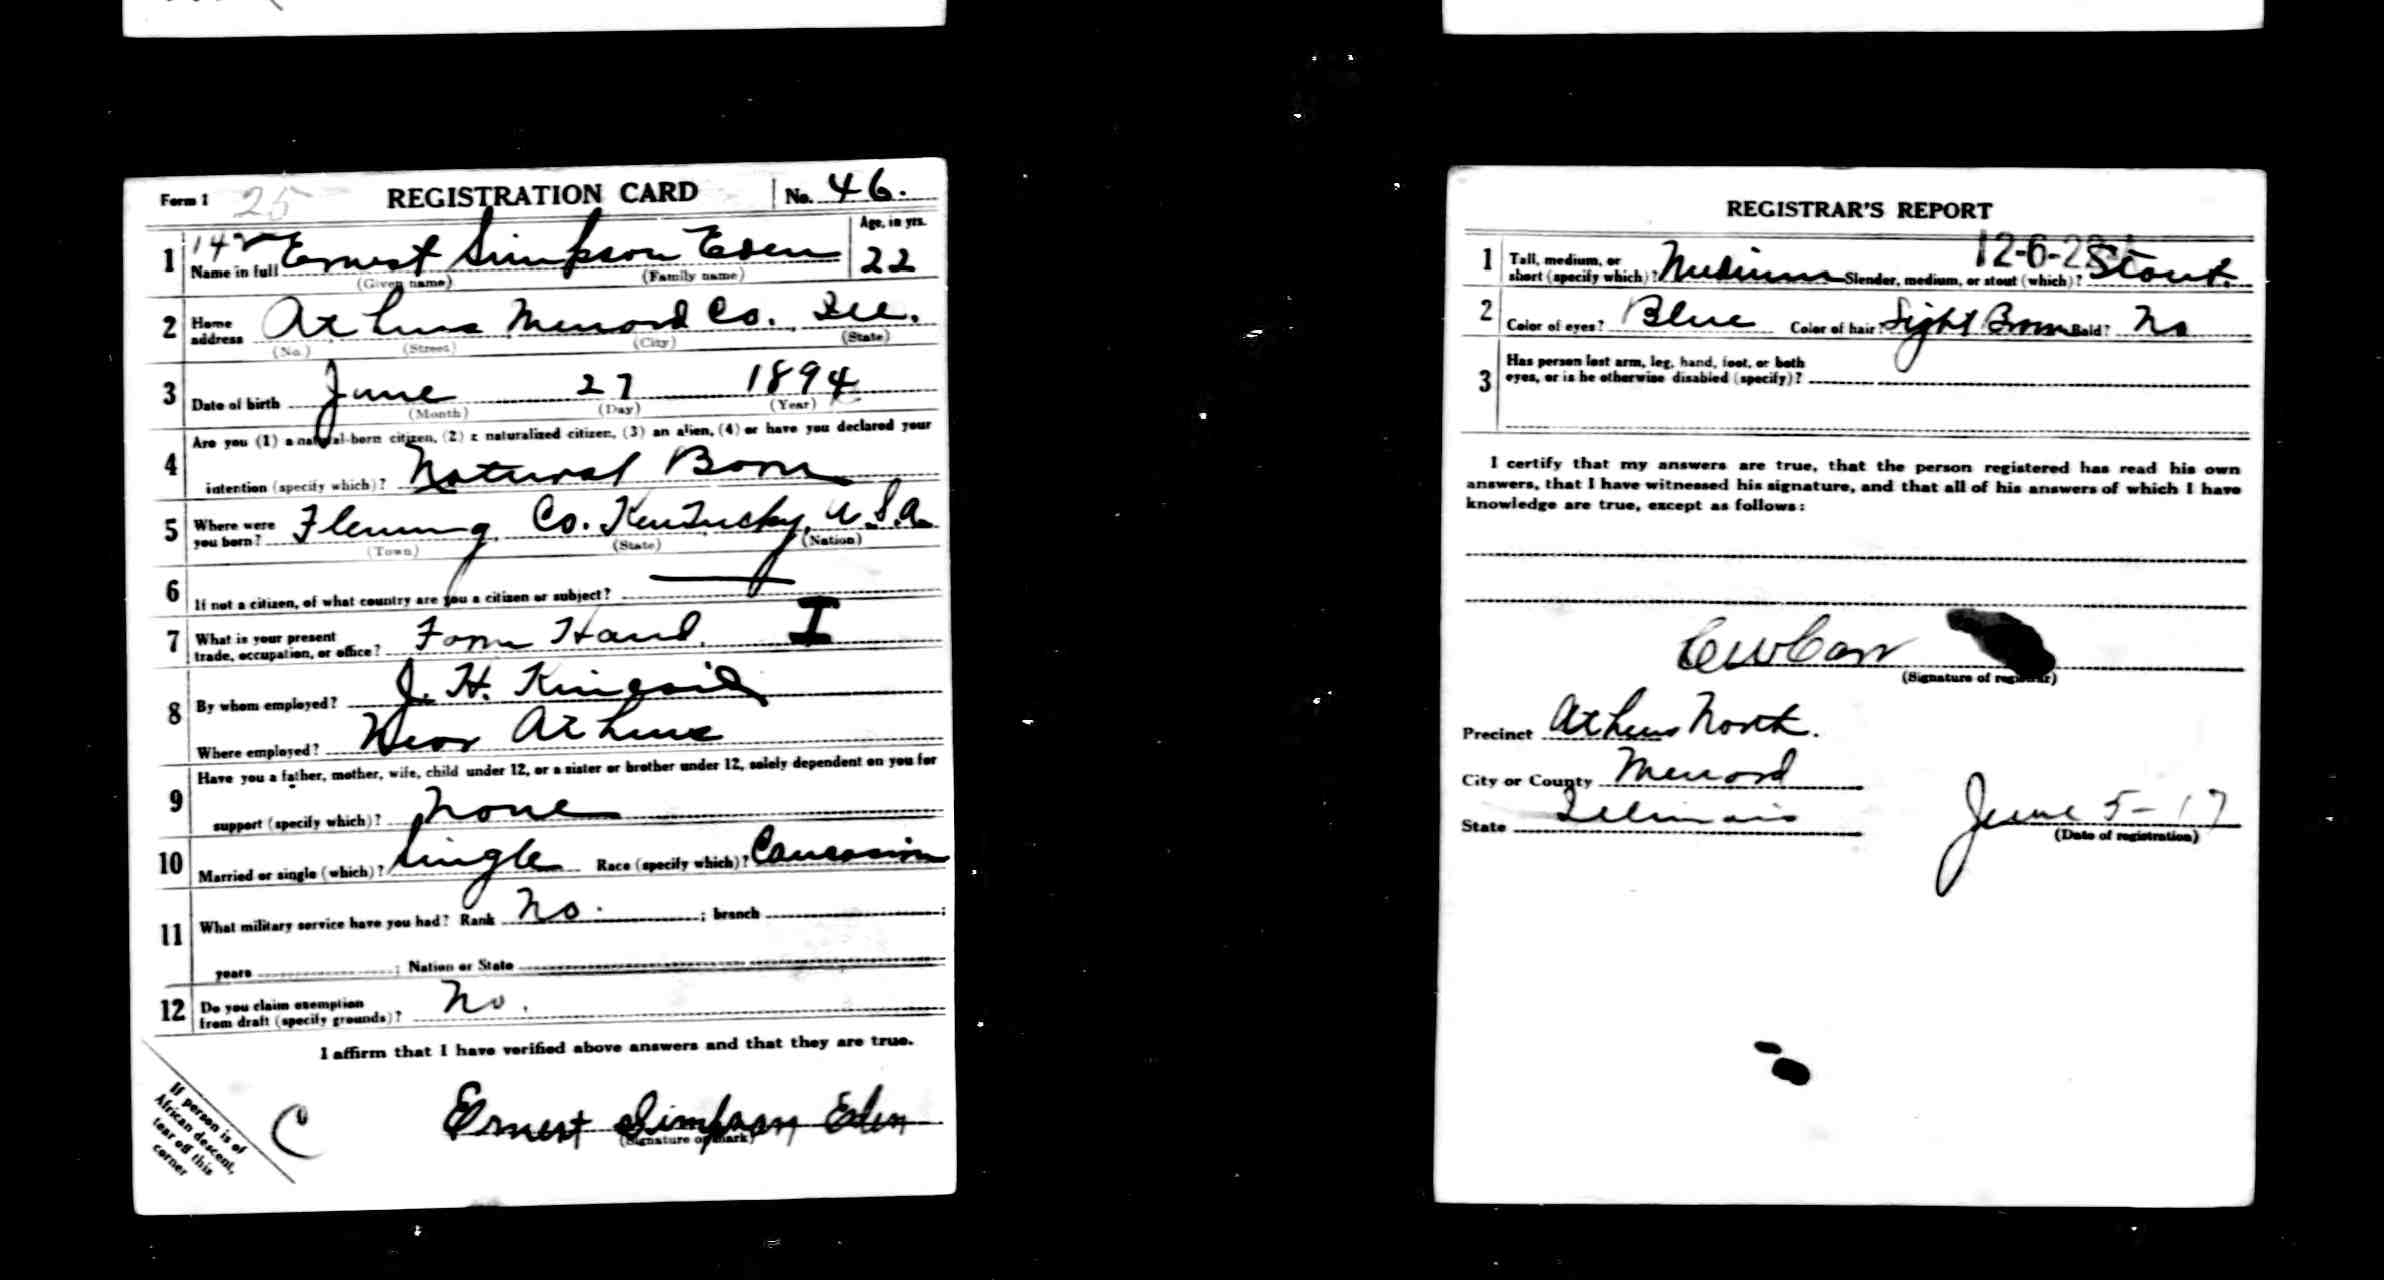 Form 1 25 REGISTRATION CARD No. 46.
1 142 Name in full Ernest Simpson Eden Age, in yrs. 22
(Given name) (Family name)
2 Home address Athens Menard Co. Ill.
(No.) (Street) (City) (State)
3 Date of birth June 27 1894
(Month) (Day) (Year)
4 Are you (1) a natural-born citizen, (2) a naturalized citizen, (3) an alien, (4) or have you declared your
intention (specify which)? Natural Born
5 Where were you born? Fleming Co. Kentucky, U.S.A.
(Town) (State) (Nation)
6 If not a citizen, of what country are you a citizen or subject?
7 What is your present trade, occupation, or office? Farm Hand. I
8 By whom employed? J. H. Kincaid
Where employed? Near Athens
9 Have you a father, mother, wife, child under 12, or a sister or brother under 12, solely dependent on you for
support (specify which)? None
10 Married or single (which)? Single Race (specify which)? Caucasian
11 What military service have you had? Rank No. ; branch ;
years ; Nation or State
12 Do you claim exemption from draft (specify grounds)? No.
I affirm that I have verified above answers and that they are true.
Ernest Simpson Eden
(Signature or mark)
If person is of
African descent,
tear off this
corner
C
REGISTRAR'S REPORT
1 Tall, medium, or short (specify which)? Medium Slender, medium, or stout (which)? Stout.
2 Color of eyes? Blue Color of hair? Light Brown Bald? No
3 Has person lost arm, leg, hand, foot, or both
eyes, or is he otherwise disabled (specify)?
I certify that my answers are true, that the person registered has read his own
answers, that I have witnessed his signature, and that all of his answers of which I have
knowledge are true, except as follows:
(Signature of registrar)
Precinct Athens North.
City or County Menard
State Illinois June 5-17
(Date of registration)